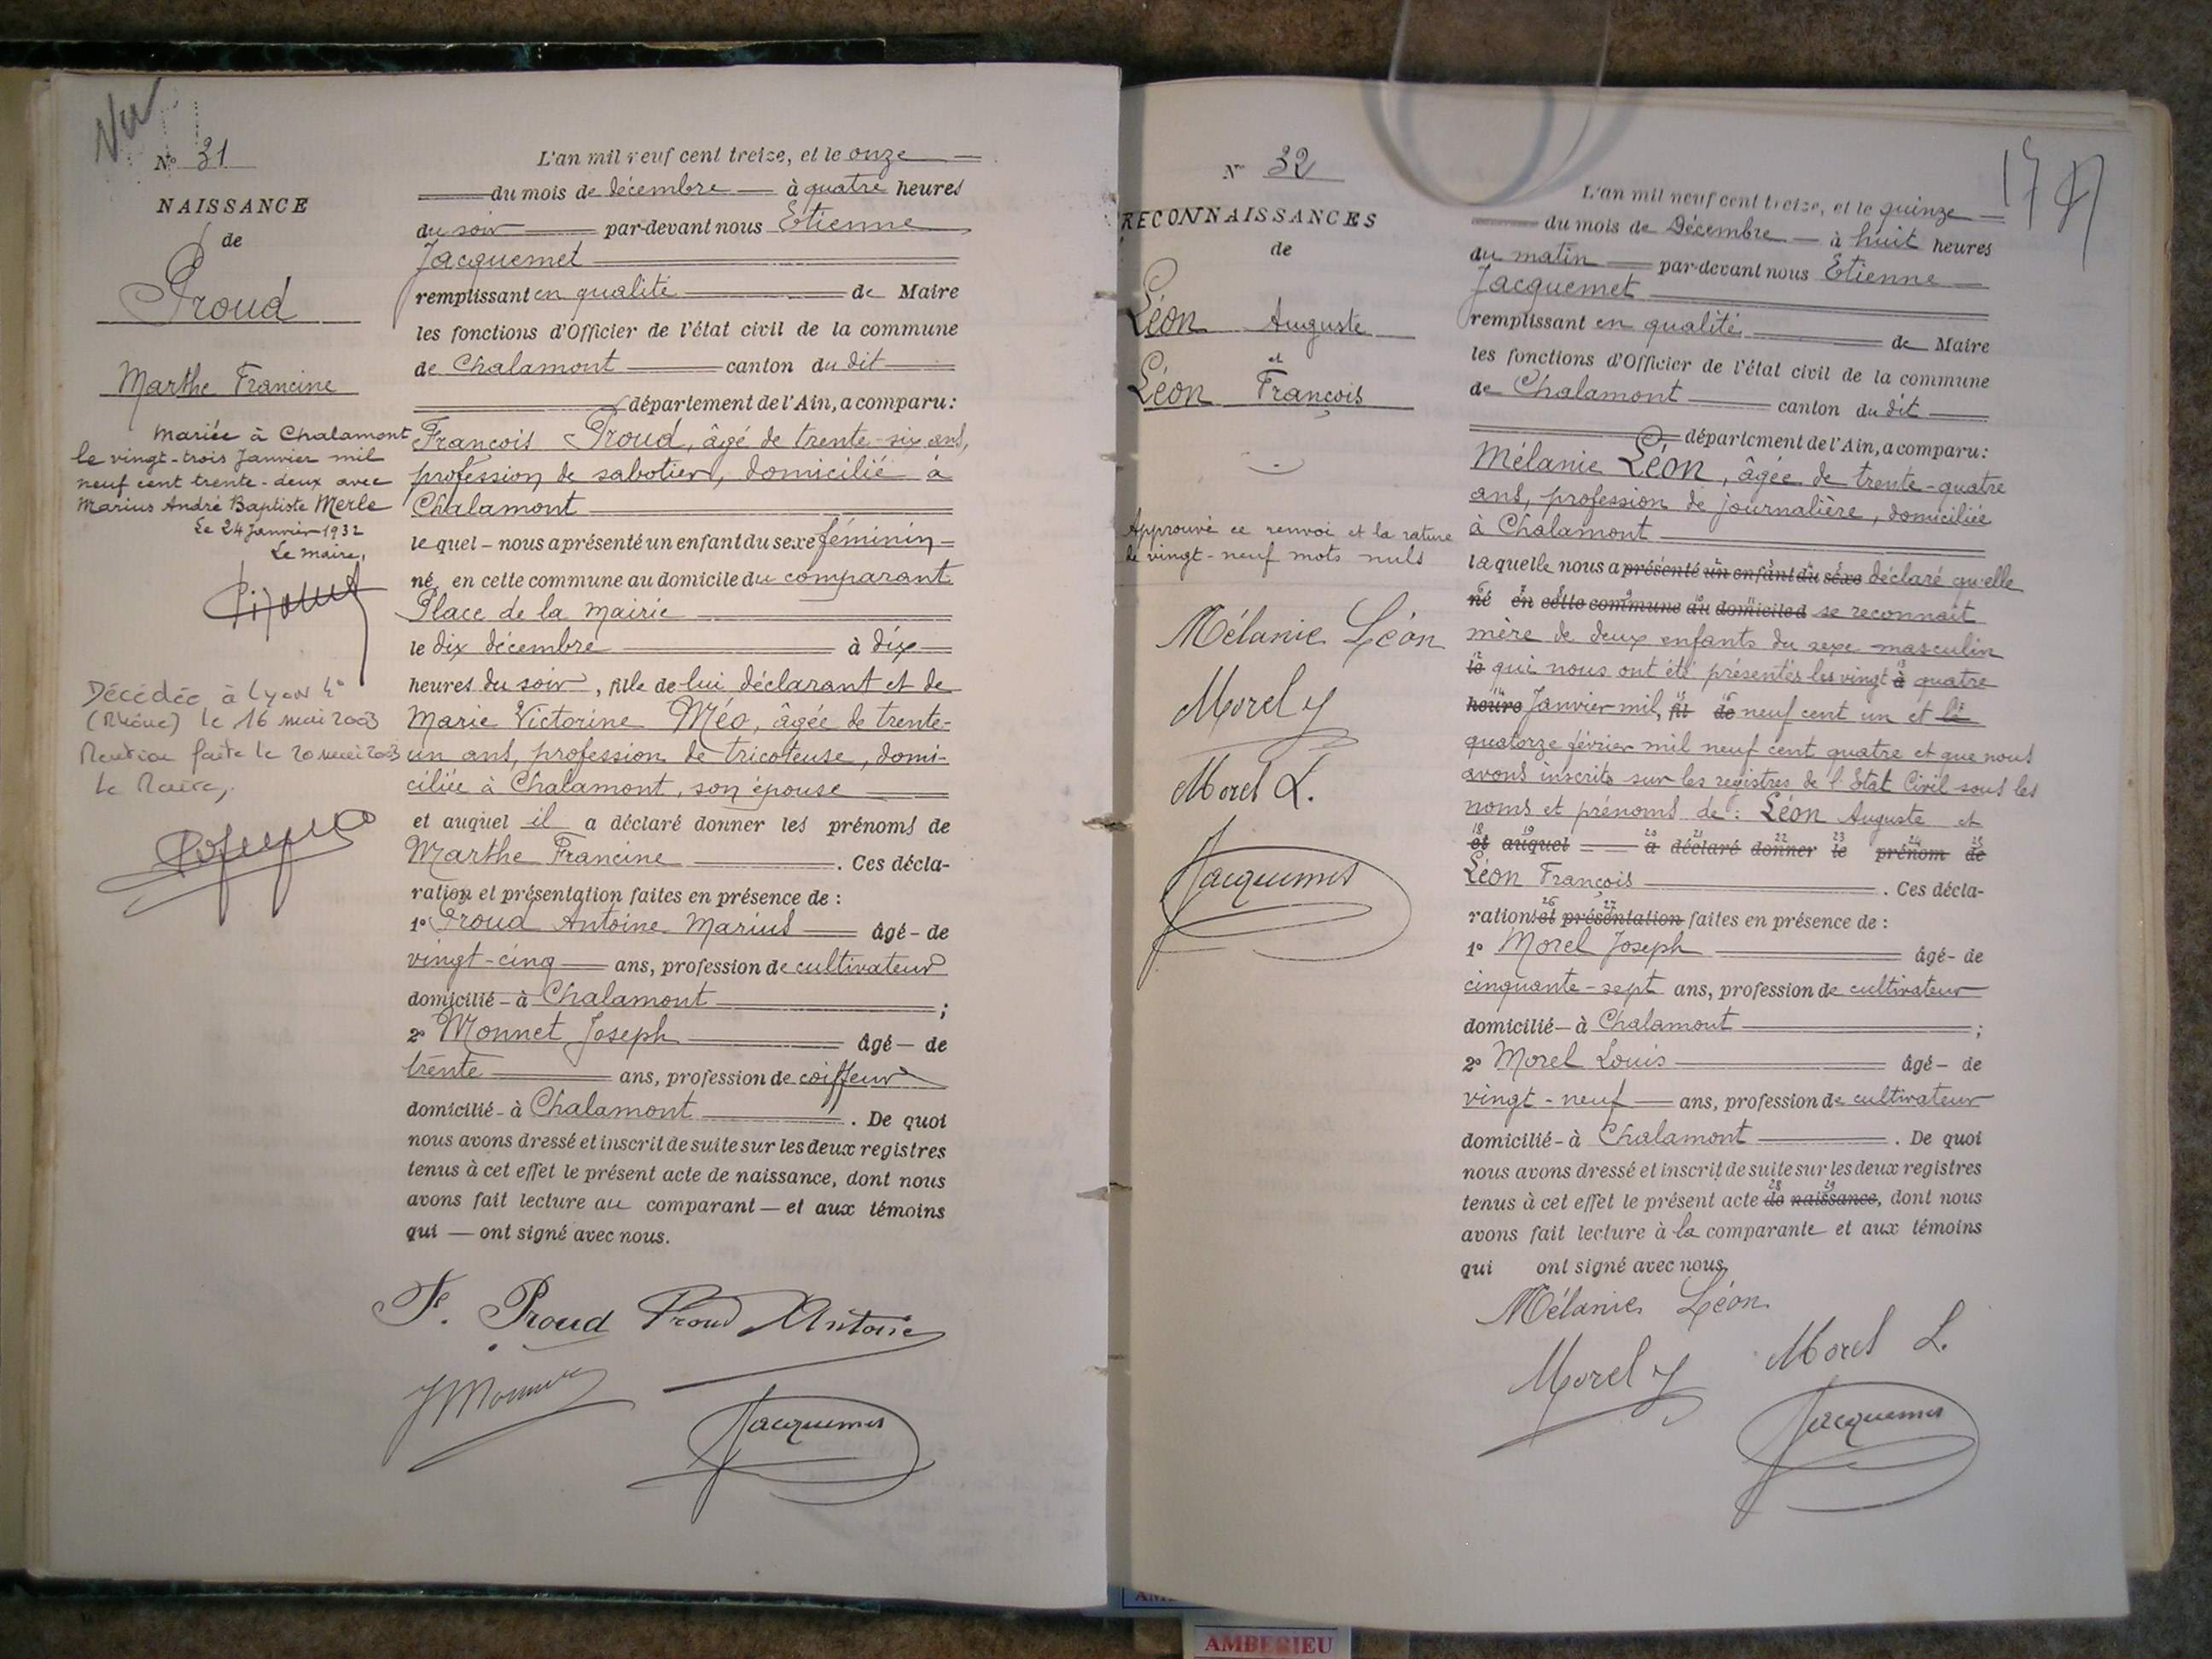 Vu
N° 31
NAISSANCE
de
Proud
Marthe Francine
Mariée à Chalamont
le vingt-trois Janvier mil
neuf cent trente-deux avec
Marius André Baptiste Merle
Le 24 Janvier 1932
Le Maire,
Décédée à Lyon 4e
(Rhône) le 16 mai 2003
Mention faite le 20 mai 2003
Le Maire,
L'an mil neuf cent treize, et le onze
du mois de décembre à quatre heures
du soir par-devant nous Etienne
Jacquemet
remplissant en qualité de Maire
les fonctions d'Officier de l'état civil de la commune
de Chalamont canton du dit
département de l'Ain, a comparu :
François Proud, âgé de trente-six ans,
profession de sabotier, domicilié à
Chalamont
lequel nous a présenté un enfant du sexe féminin
né en cette commune au domicile du comparant
Place de la mairie
le dix décembre à dix
heures du soir, fille de lui déclarant et de
Marie Victorine Méo, âgée de trente-
un ans, profession de tricoteuse, domi-
ciliée à Chalamont, son épouse
et auquel il a déclaré donner les prénoms de
Marthe Francine . Ces décla-
ration et présentation faites en présence de :
1° Proud Antoine Marius âgé de
vingt-cinq ans, profession de cultivateur
domicilié à Chalamont ;
2° Monnet Joseph âgé de
trente ans, profession de coiffeur
domicilié à Chalamont . De quoi
nous avons dressé et inscrit de suite sur les deux registres
tenus à cet effet le présent acte de naissance, dont nous
avons fait lecture au comparant et aux témoins
qui ont signé avec nous.
F. Proud Proud Antoine
J Monnet
Jacquemet
17
N° 32
RECONNAISSANCES
de
Léon Auguste
et
Léon François
Approuvé ce renvoi et la rature
de vingt-neuf mots nuls
Mélanie Léon
Morel J
Morel L.
Jacquemet
L'an mil neuf cent treize, et le quinze
du mois de Décembre à huit heures
du matin par-devant nous Etienne
Jacquemet
remplissant en qualité de Maire
les fonctions d'Officier de l'état civil de la commune
de Chalamont canton du dit
département de l'Ain, a comparu :
Mélanie Léon, âgée de trente-quatre
ans, profession de journalière, domiciliée
à Chalamont
laquelle nous a présenté un enfant du sexe déclaré qu'elle
né en cette commune au domicile d se reconnait
mère de deux enfants du sexe masculin
le qui nous ont été présentés les vingt à quatre
heure Janvier mil, fil de neuf cent un et le
quatorze février mil neuf cent quatre et que nous
avons inscrits sur les registres de l'Etat Civil sous les
noms et prénoms de : Léon Auguste et
et auquel a déclaré donner le prénom de
Léon François . Ces décla-
rations et présentation faites en présence de :
1° Morel Joseph âgé de
cinquante-sept ans, profession de cultivateur
domicilié à Chalamont ;
2° Morel Louis âgé de
vingt-neuf ans, profession de cultivateur
domicilié à Chalamont . De quoi
nous avons dressé et inscrit de suite sur les deux registres
tenus à cet effet le présent acte de naissance, dont nous
avons fait lecture à la comparante et aux témoins
qui ont signé avec nous.
Mélanie Léon
Morel J Morel L.
Jacquemet
AMBERIEU